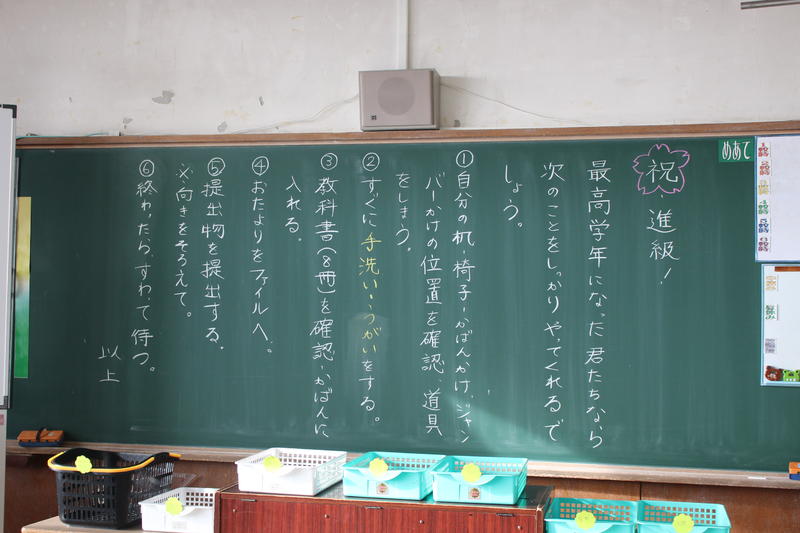 めあて
祝・進級！
最高学年になった君たちなら
次のことをしっかりやってくれるで
しょう。
①自分の机、椅子、かばんかけ、ジャン
パーかけの位置を確認、道具
をしまう。
②すぐに手洗い・うがいをする。
③教科書(8冊)を確認・かばんに
入れる。
④おたよりをファイルへ。
⑤提出物を提出する。
※向きをそろえて。
⑥終わったら、すわって待つ。
以上